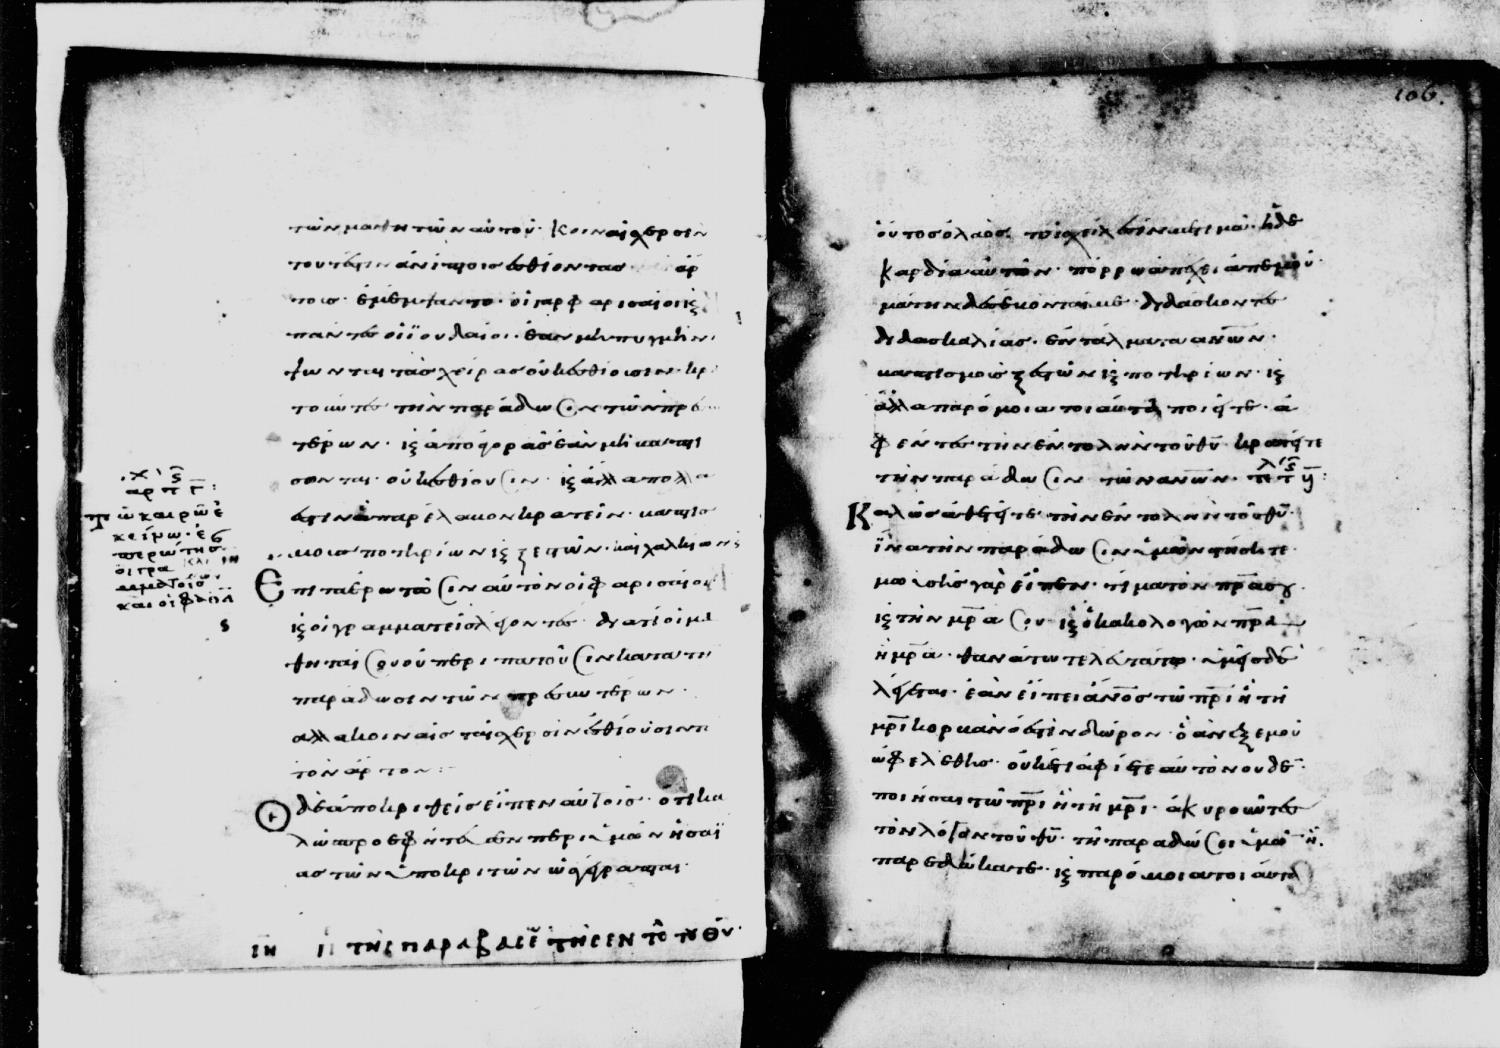 τῶν μαθητῶν αὐτοῦ· κοιναῖς χερσὶν
τουτέστιν ἀνίπτοις ἐσθίοντας ἄρ
τους· ἐμέμψαντο· οἱ γὰρ φαρισαῖοι καὶ
πάντες οἱ ϊουδαῖοι· ἐὰν μὴ πυγμῆ νί
ψωνται τὰς χεῖρας οὐκ ἐσθίουσιν· κρα
τοῦντες τὴν παράδωσιν τῶν πρεσ
τέρων· καὶ ἀπὸ ἀγορᾶς ἐὰν μὴ βαπτί
σωνται· οὐκ ἐσθίουσιν· καὶ ἄλλα πολλά
ἐστιν ἃ παρέλαβον κρατεῖν· βαπτισ
μοὺς ποτηρίων καὶ ξεστῶν· καὶ χαλκίων καὶ
Επιτα ἐρωτῶσιν αὐτὸν οἱ φαρισαῖοι
καὶ οἱ γραμματεῖς λέγοντες· διατί οἱ μα
θηταί σου οὐ περιπατοῦσιν κατὰ τὴν
παράδωσιν τῶν πρεσβυτέρων·
ἀλλὰ κοιναῖς ταῖς χερσὶν ἐσθίουσιν
τὸν ἄρτον:
Ο δὲ ἀποκριθεὶς εἶπεν αὐτοῖς· ὅτι κα
λῶς προεφήτευσεν περὶ ὑμῶν ἡσαΐ
ας τῶν ὑποκριτῶν ὡς γέγραπται·
τῆς παραβάσε τῆς ἐντο τοῦ θυ·
τῶ καιρῶ ἐ
κείνω· ἐ
περώτησ
οἱ γρα
μματεῖς
καὶ οἱ φαρισ
106.
οὗτος ὁ λαὸς τοῖς χείλεσίν με τιμᾶ· ἡ δὲ
καρδία αὐτῶν· πόρρω ἀπέχει ἀπ' ἐμοῦ·
μάτην δὲ σέβονταί με· διδάσκοντες
διδασκαλίας· ἐντάλματα ἀνων·
βαπτισμοὺς ξεστῶν καὶ ποτηρίων· καὶ
ἄλλα παρόμοια τοιαῦτα ποιεῖτε· ἀ
φέντες τὴν ἐντολὴν τοῦ θυ· κρατεῖτε
τὴν παράδωσιν τῶν ανων·
Καλῶς ἀθετεῖτε τὴν ἐντολὴν τοῦ θυ·
ἵνα τὴν παράδωσιν ὑμῶν τηρῆτε·
μωϋσῆς γὰρ εἶπεν· τίμα τὸν πρα σου
καὶ τὴν μρα σου· καὶ ὁ κακολογῶν πρα
ἢ μρα· θανάτω τελευτάτω· ὑμεῖς δὲ
λέγεται· ἐὰν εἴπει ανος τῶ πρι ἢ τῆ
μρι κορβὰν ὅ ἐστιν δῶρον· ὃ ἂν ἐξ ἐμοῦ
ὠφεληθῆς· οὐκέτι ἀφίετε αὐτὸν οὐδὲν
ποιῆσαι τῶ πρι ἢ τῆ μρι· ἀκυροῦντες
τὸν λόγον τοῦ θυ· τῆ παραδώσει ὑμῶν ἧ
παρεδώκατε· καὶ παρόμοια τοιαῦτα